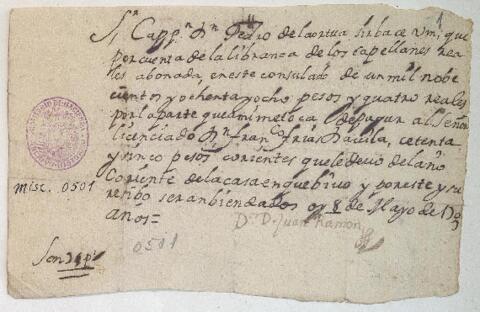 Sr Cappn Dn Pedro de la ortua sirbase Vm, que
por cuenta de la libranca de los capellanes rea
les abonada, en este consulado de un mil nobe
cientos y ochenta y ocho pesos y quatro reales
por la parte que a mi me toca de pagar al Señor
licenciado Dn franco frias Davila, cetenta
y cinco pesos corientes que le devo del año
Coriente de la casa en que bivo y por este y su
resibo seran bien dados oy 8 de Mayo de
años=
Dr D. Juan Ramon
misc. 0501
Son 75 ps
0501